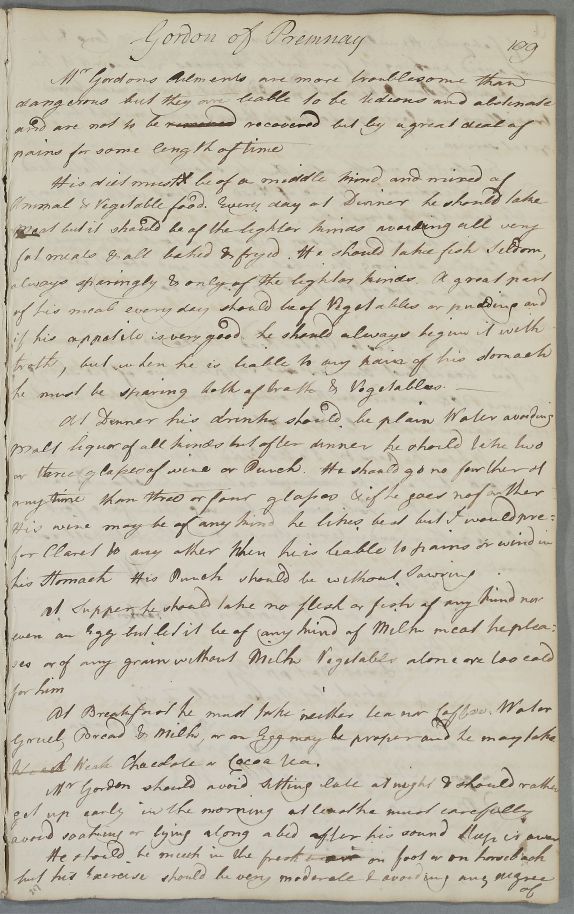 Gordon of Premnay
109
Mr Gordons Ailments are more troublesome than
dangerous but they are liable to be tedious and obstinate
and are not to be removed recovered but by a great deal of
pains for some length of time
His diet must be of a middle kind and mixed of
Animal & Vegetable food. Every day at Dinner he should take
meat but it should be of the lighter kinds avoiding all very
fat meats & all baked & fryed. He should take fish seldom,
always sparingly & only of the lighter kinds. A great part
of his meal every day should be of Vegetables or pudding and
if his appetite is very good he should always begin it with
broth, but when he is liable to any pains of his stomach
he must be sparing both of broth & Vegetables. —
At Dinner his drink should be plain Water avoiding
malt liquor of all kinds but after dinner he should take two
or three glasses of wine or Punch. He should go no further at
any time than three or four glasses & if he goes no farther
His wine may be of any kind he likes best but I would pre=
fer Claret to any other When he is liable to pains or wind in
his Stomach His Punch should be without Souring
At Supper he should take no flesh or fish of any kind nor
even an Egg but let it be of any kind of Milk meat he plea=
ses or of any grain without Milk Vegetables alone are too cold
for him
At Breakfast he must take neither tea nor Coffee. Water
Gruel, Bread & Milk, or an Egg may be proper and he may take
Weak Chocolate or Cocoa tea.
Mr Gordon should avoid sitting late at night & should rather
get up early in the morning at least he must carefully
avoid soaking or lying along abed after his sound sleep is over
He should be much in the fresh air on foot or on horseback
but his Exercise should be very moderate & avoiding any degree
of